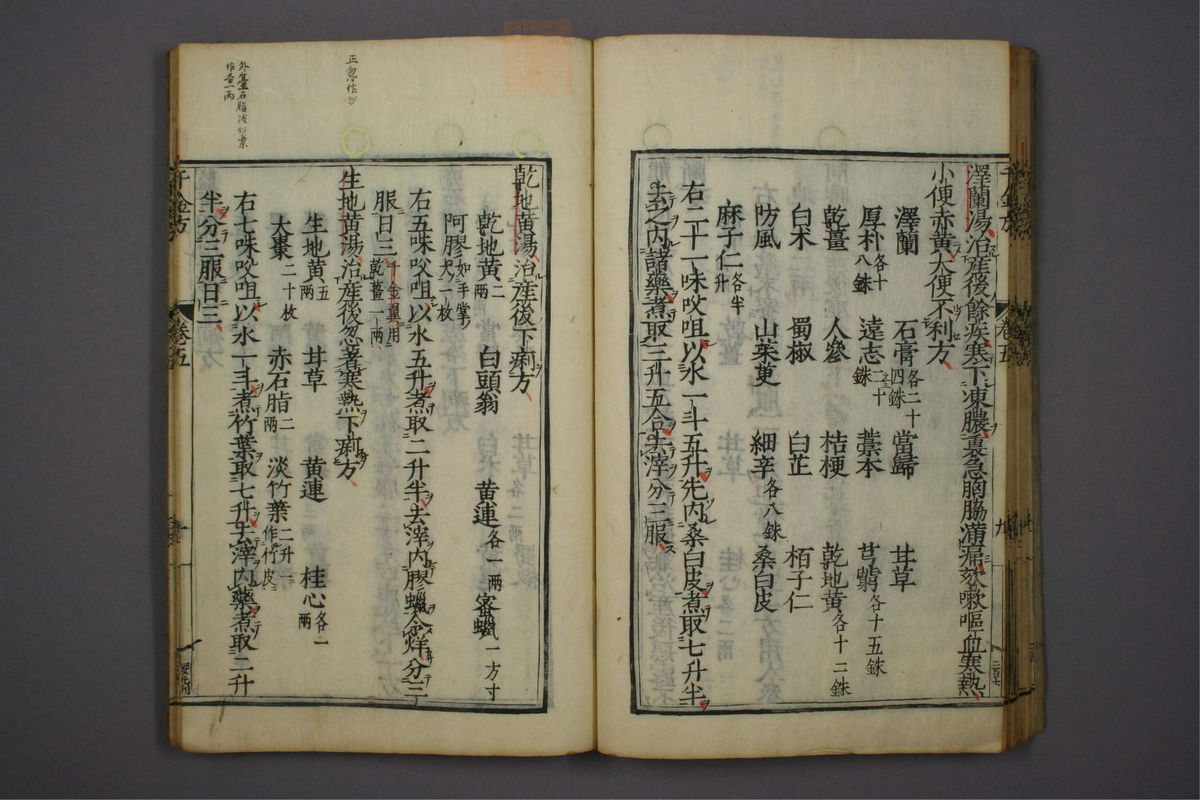 澤蘭湯治産後餘疾寒下凍膿裏急胸脇滿痛欬嗽嘔血寒熱
小便赤黄大便不利方
澤蘭 石膏各二十四銖 當歸 甘草
厚朴各十八銖 遠志二十銖 藁本 芎藭各十五銖
乾薑 人參 桔梗 乾地黄各十二銖
白朮 蜀椒 白芷 栢子仁
防風 山茱萸 細辛各八銖 桑白皮
麻子仁各半升
右二十一味㕮咀以水一斗五升先内桑白皮煮取七升半
去之内諸藥煮取三升五合去滓分三服
千金方
卷五
九
乾地黄湯治産後下痢方
乾地黄二兩 白頭翁 黄連各一兩 蜜蠟一方寸
阿膠如手掌大一枚
右五味㕮咀以水五升煮取二升半去滓内膠蠟令烊分三
服日三千金翼用乾薑一兩
生地黄湯治産後忽著寒熱下痢方
生地黄五兩 甘草 黄連 桂心各一兩
大棗二十枚 赤石脂二兩 淡竹葉二升一作竹皮
右七味㕮咀以水一斗煮竹葉取七升去滓内藥煮取二升
半分三服日三
千金方
卷五
十